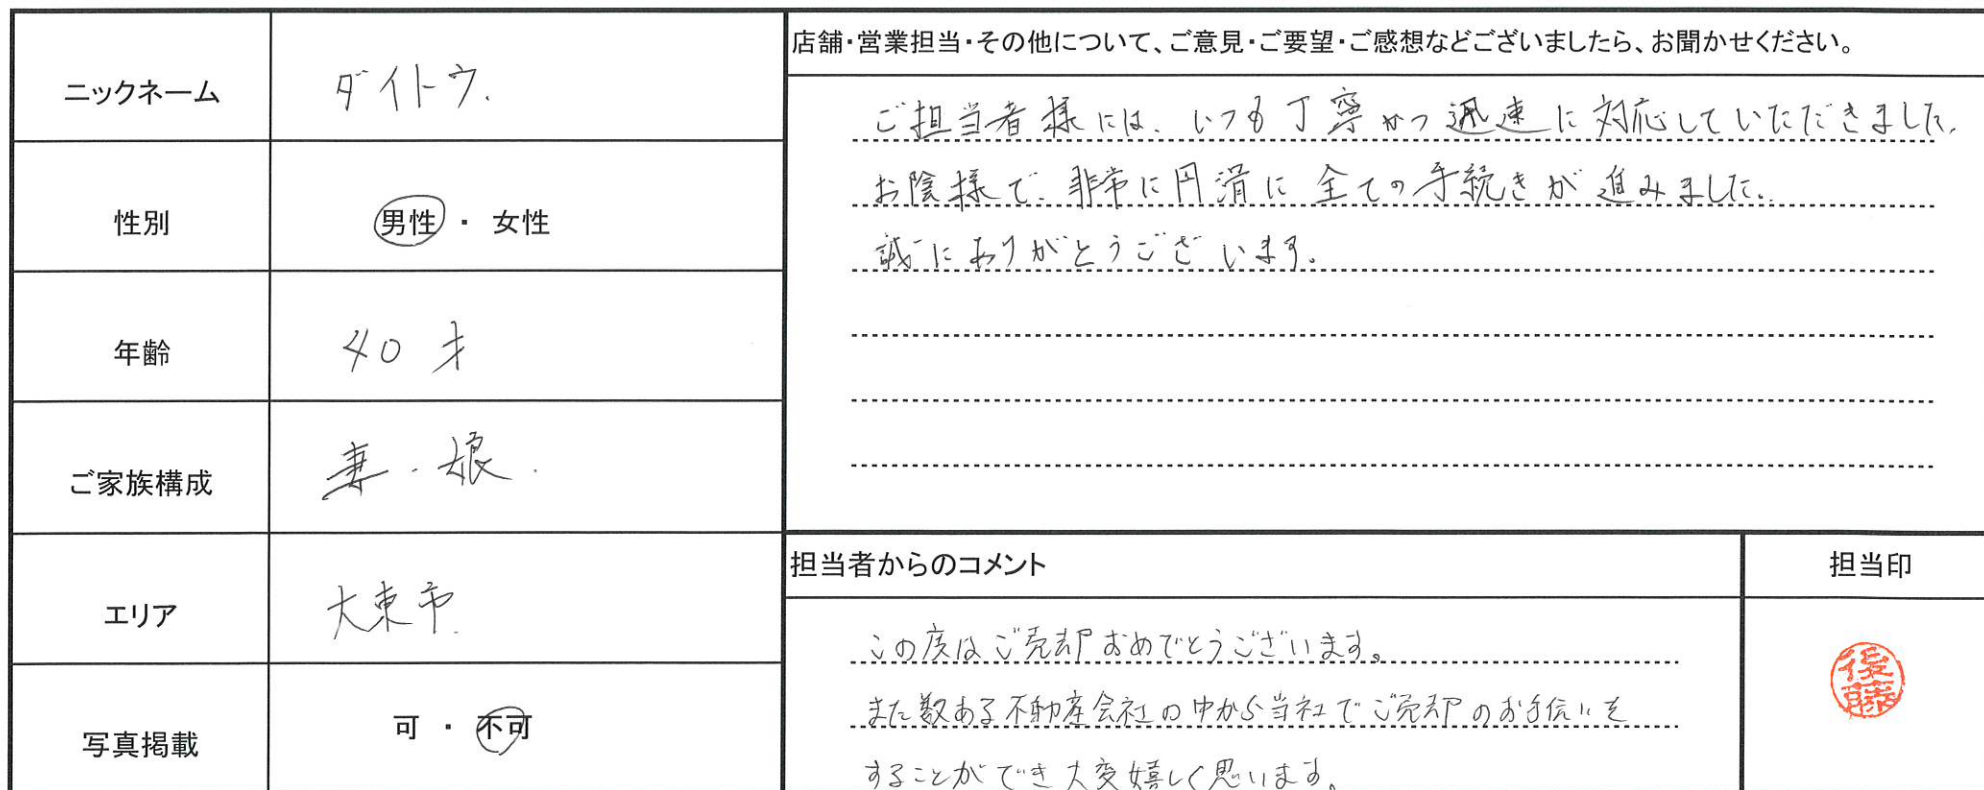 ニックネーム
ダイトウ.
性別
男性 ・ 女性
年齢
40才
ご家族構成
妻・娘.
エリア
大東市.
写真掲載
可 ・ 不可
店舗・営業担当・その他について、ご意見・ご要望・ご感想などございましたら、お聞かせください。
ご担当者様には、いつも丁寧かつ迅速に対応していただきました。
お陰様で、非常に円滑に全ての手続きが進みました。
誠にありがとうございます。
担当者からのコメント
この度はご売却おめでとうございます。
また数ある不動産会社の中から当社でご売却のお手伝いを
することができ大変嬉しく思います。
担当印
後藤